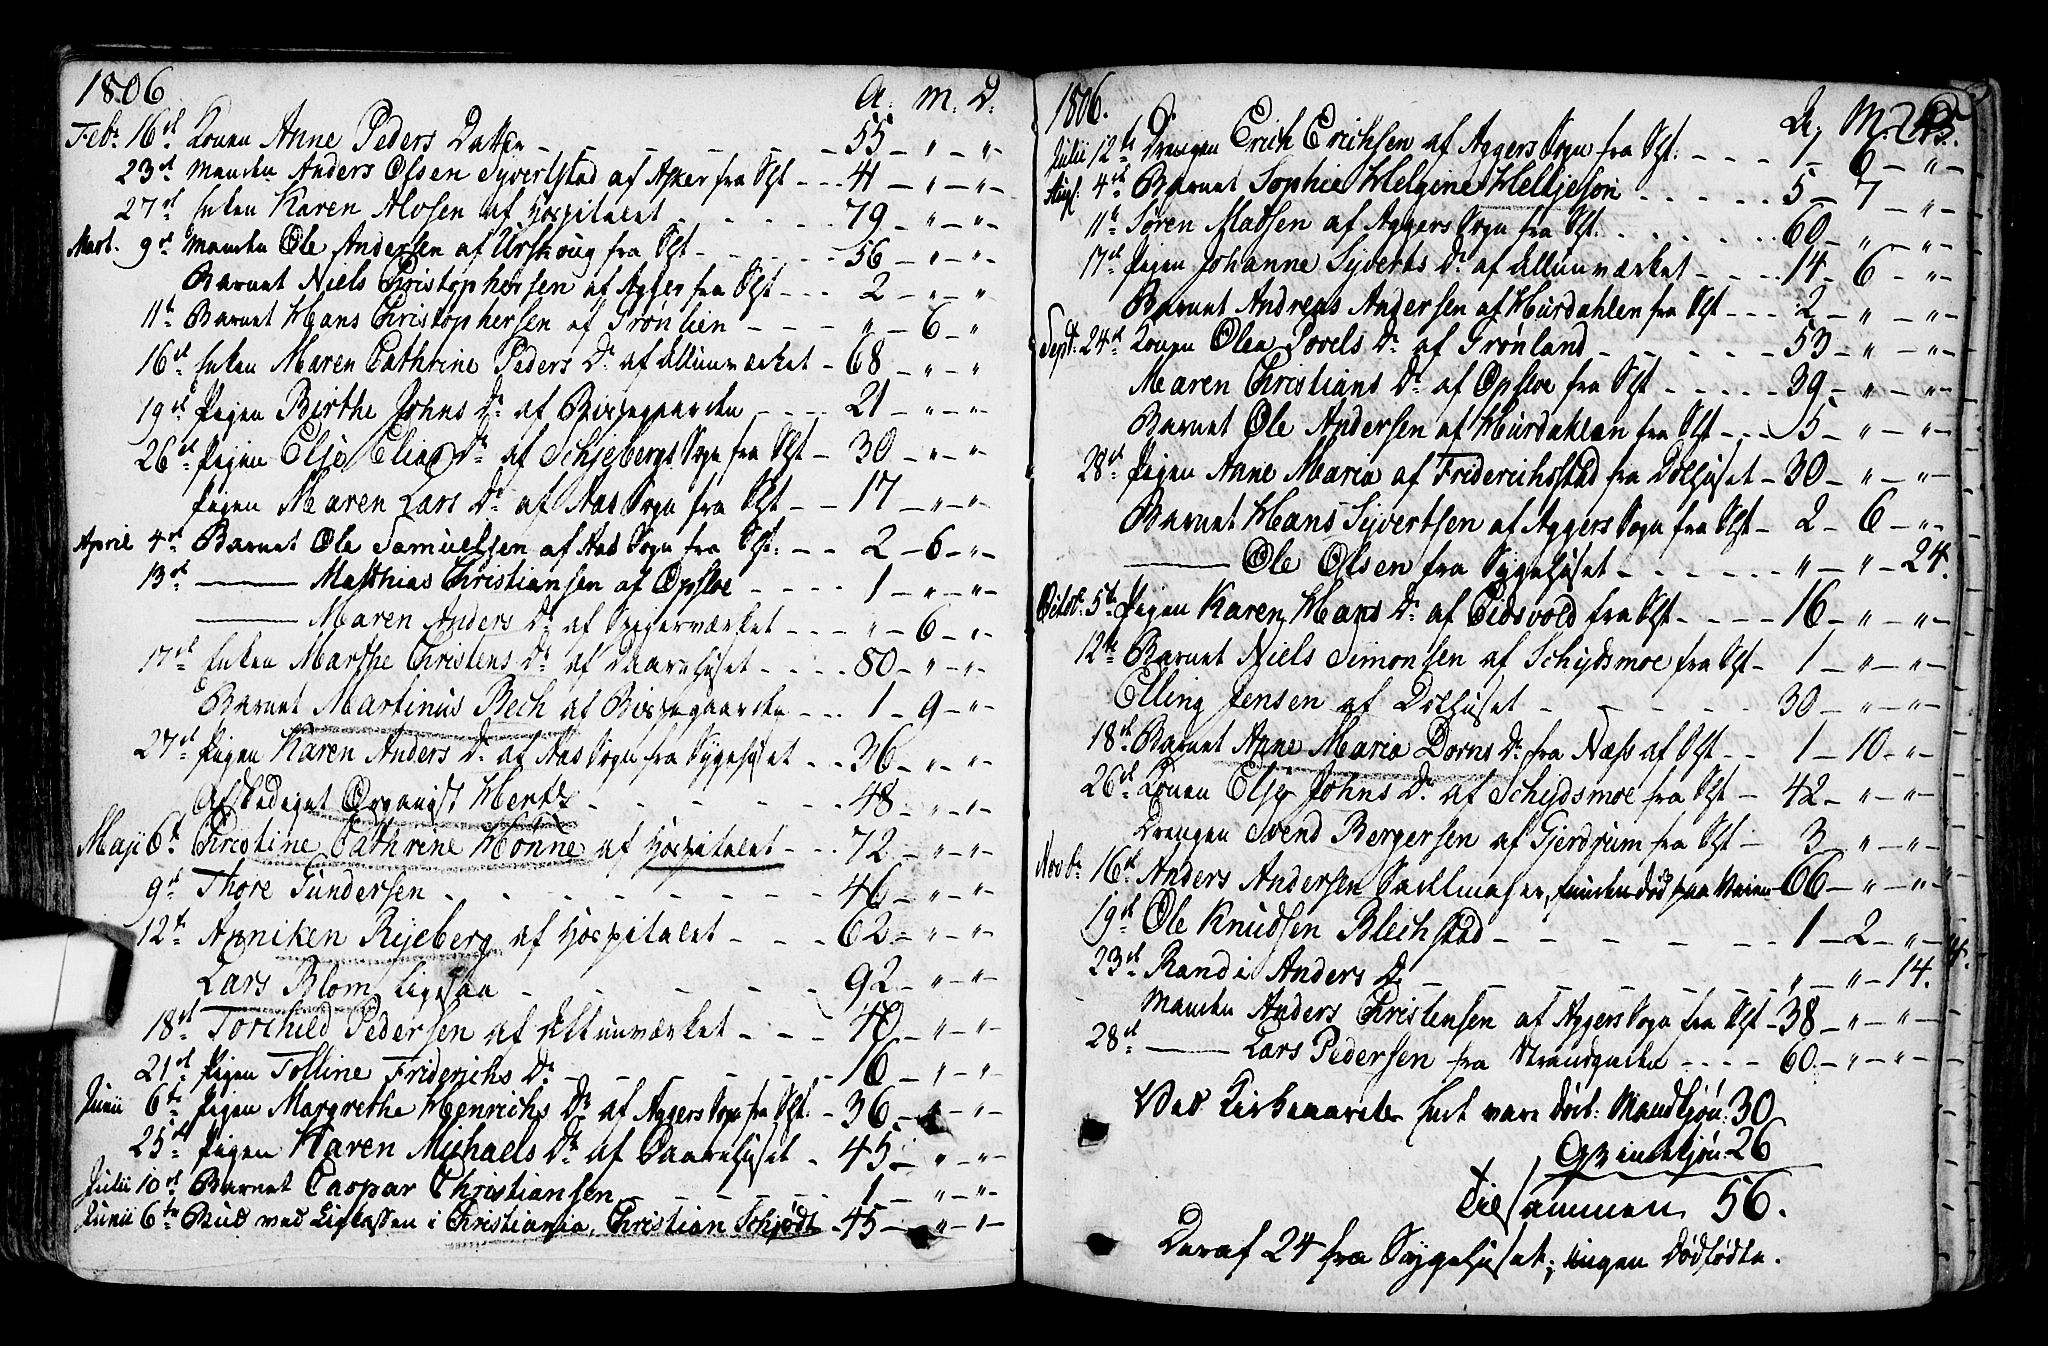 1806 A. M. D.
Febr. 16de Konen Anne Peders Datter - 55 - " - "
23de Manden Anders Olsen Syvertstad af Asker fra Sgst - 41 - " - "
27de Enken Karen Alvsen af Hospitalet - 79 - " - "
Mart. 9de Manden Ole Andersen af Urskoug fra Sgst - 56 - " - "
Barnet Niels Christophersen af Agger fra Sgst - 2 - " - "
11te Barnet Hans Christophersen af Grønlien - " - 6 - "
16de Enken Maren Cathrine Peders Dr af Allunværket - 68 - " - "
19de Pigen Birthe Johns Dr af Bispegaarden - 21 - " - "
26de Pigen Elje Elias Dr af Schjebergs Sogn fra Sgst - 30 - " - "
Pigen Maren Lars Dr af Aas Sogn fra Sgst - 17 - " - "
April 4de Barnet Ole Samuelsen af Aas Sogn fra Sgst: - 2 - 6 - "
13de —— Matthias Christiansen af Opsloe - 1 - " - "
—— Maren Anders Dr af Spigerværket - " - 6 - "
17de Enken Marthe Christens Dr af Daarehuset - 80 - " - "
Barnet Martinus Bech af Bispegaarden - 1 - 9 - "
27de Pigen Karen Anders Dr af Aas Sogn fra Sygehuset - 36 - " - "
Afskediget Organist Hertz - 48 - " - "
Maji 6te Christine Cathrine Hønne af Hospitalet - 72 - " - "
9de Thore Gundersen - 46 - " - "
12te Anniken Rijeberg af Hospitalet - 62 - " - "
Lars Blom, ligesaa - 92 - " - "
18de Torchild Pedersen af Allunværket - 40 - " - "
21de Pigen Tolline Friderichs Dr - 16 - " - "
Junii 6te Pigen Margrethe Henrichs Dr af Aggers Sogn fra Sgst. - 36 - " - "
25de Pigen Karen Michaels Dr af Daarehuset - 45 - " - "
Julii 10de Barnet Caspar Christiansen - 1 - " - "
Junii 6te Bud ved Ligkassen i Christiania, Christian Schjødt - 45 - " - "
1806. A. M. D.
Julii 12te Drengen Erich Erichsen af Aggers Sogn fra Sgt. - 1 - 6 - "
Aug. 4de Barnet Sophie Helgine Helljeson - 5 - 7 - "
11te Søren Madsen af Aggers Sogn fra Sgt. - 60 - " - "
17de Pigen Johanne Syverts Dr af Allunværket - 14 - 6 - "
Barnet Andreas Andersen af Hurdahlen fra Sgst - 2 - " - "
Septr. 24de Konen Olea Povels Dr af Grønland - 53 - " - "
Maren Christians Dr af Opsloe fra Sgst - 39 - " - "
Barnet Ole Andersen af Hurdahlen fra Sgst - 5 - " - "
28de Pigen Anne Maria af Friderichsstad fra Dolhuset - 30 - " - "
Barnet Hans Syvertsen af Aggers Sogn fra Sgst - 2 - 6 - "
—— Ole Olsen fra Sygehuset - " - " - 24.
Octobr. 5te Pigen Karen Hans Dr af Eidsvold fra Sgst - 16 - " - "
12te Barnet Niels Simonsen af Schydsmoe fra Sgst - 1 - " - "
Elling Jensen af Dolhuset - 30 - " - "
18de Barnet Anne Maria Dorns Dr fra Næss af Sgst - 1 - 10 - "
26de Konen Elje Johns Dr af Schydsmoe fra Sgst - 42 - " - "
Drengen Svend Bergersen af Gjerdrum fra Sgst - 3 - " - "
Novbr. 16de Anders Andersen Sadelmager, funden død paa Veien 66 - " - "
19de Ole Knudsen Blechstad - 1 - 2 - "
23de Randi Anders Dr - " - " - 14.
Manden Anders Christensen af Aggers Sogn fra Sgst - 38 - " - "
28de —— Lars Pedersen fra Strandgaden - 60 - " - "
Ved Kirkeaarets Ende vare døde: Mandkjøn: 30
Qvindekjøn: 26
Tilsammen 56.
Deraf 24 fra Sygehuset; ingen Dødfødte.